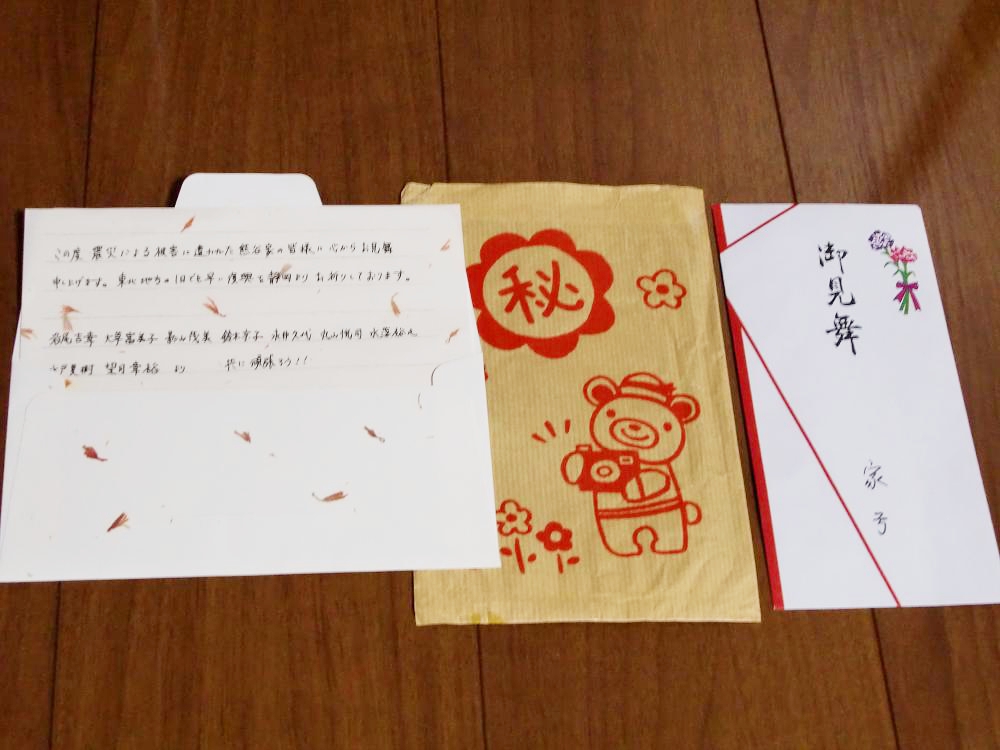 この度 震災による被害に遭われた熊谷家の皆様に心からお見舞
申し上げます。東北地方の1日でも早い復興を静岡よりお祈りしております。
大草富美子 影山茂美 鈴木京子 永井久代 丸山悦司
望月章裕 より 共に頑張ろう!!
秘
御見舞